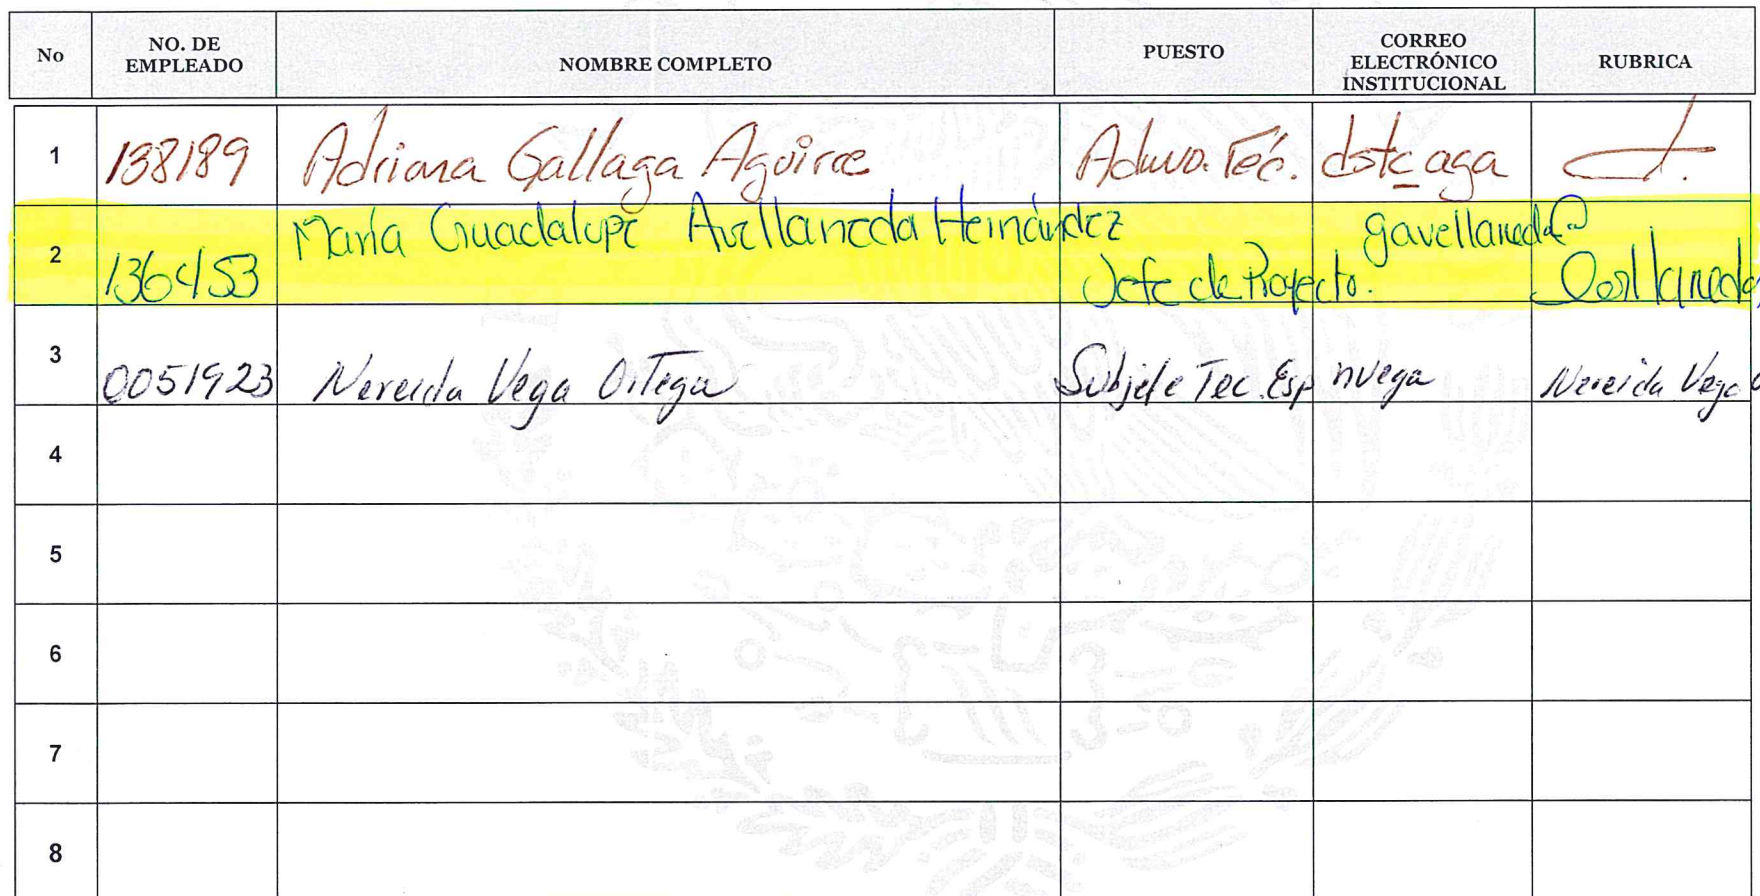 No NO. DE EMPLEADO NOMBRE COMPLETO PUESTO CORREO ELECTRÓNICO INSTITUCIONAL RUBRICA
1 138189 Adriana Gallaga Aguirre Admvo. Téc. dstc aga
2 136453 María Guadalupe Avellaneda Hernández Jefe de Proyecto. gavellaneda
3 0051923 Nereida Vega Ortega Subjefe Tec. Esp nvega Nereida Vega O
4
5
6
7
8